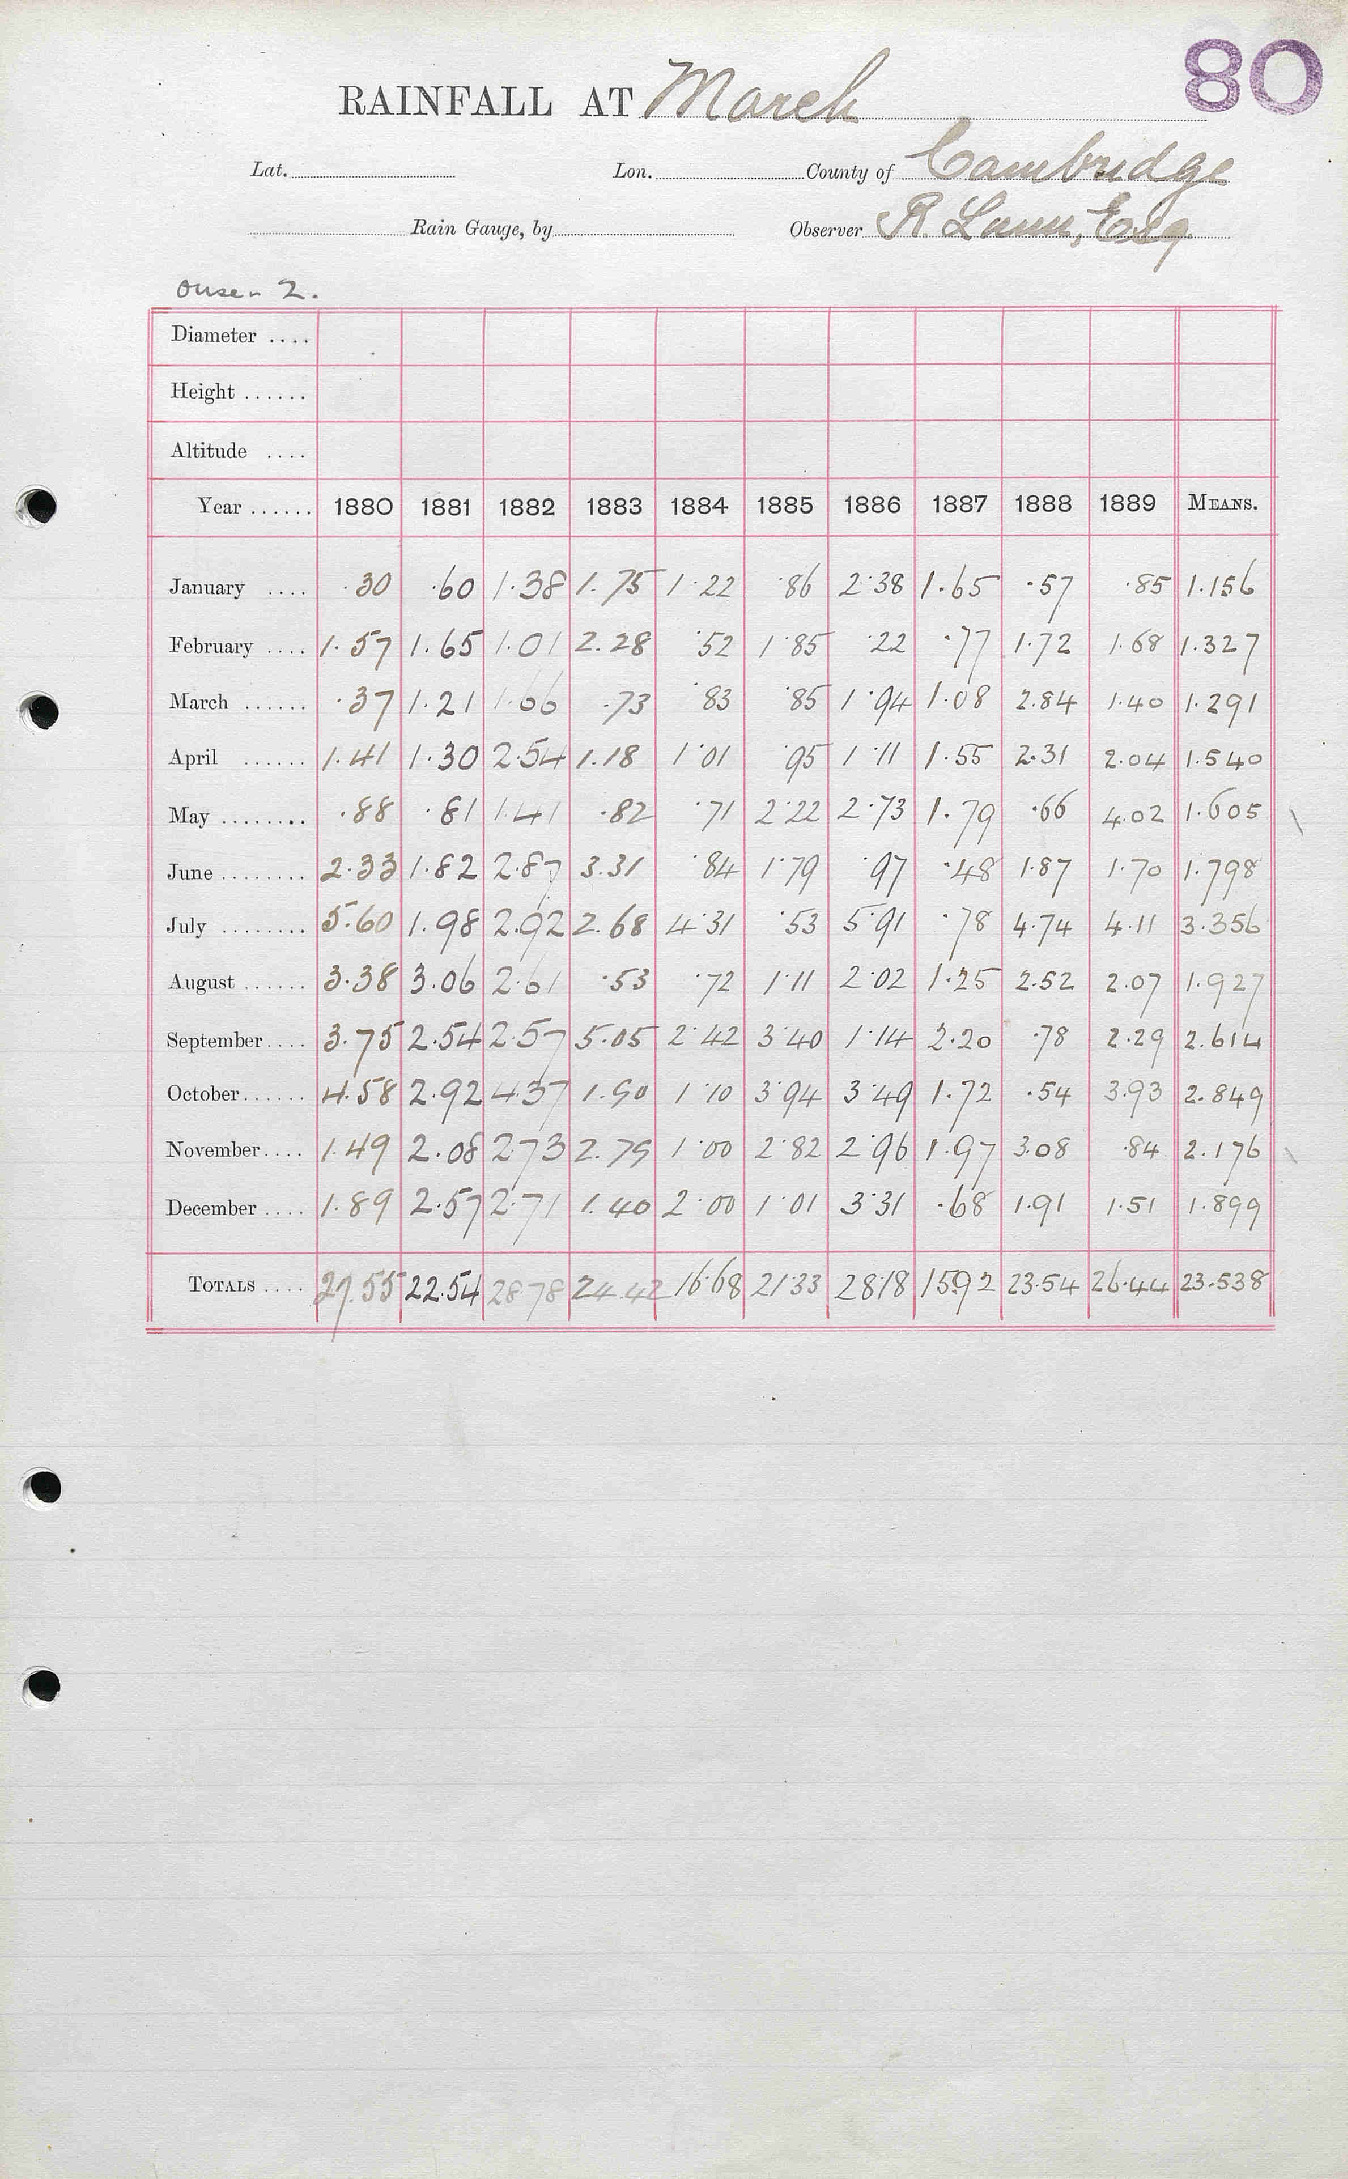 80
RAINFALL AT March
Lat. Lon. County of Cambridge
Rain Gauge, by Observer R. Esq
Ouse - 2.
Diameter ....
Height ......
Altitude ....
Year ...... 1880 1881 1882 1883 1884 1885 1886 1887 1888 1889 MEANS.
January .... .30 .60 1.38 1.75 1.22 .86 2.38 1.65 .57 .85 1.156
February .... 1.57 1.65 1.01 2.28 .52 1.85 .22 .77 1.72 1.68 1.327
March ...... .37 1.21 1.66 .73 .83 .85 1.94 1.08 2.84 1.40 1.291
April ...... 1.41 1.30 2.54 1.18 1.01 .95 1.11 1.55 2.31 2.04 1.540
May ........ .88 .81 1.41 .82 .71 2.22 2.73 1.79 .66 4.02 1.605
June ........ 2.33 1.82 2.87 3.31 .84 1.79 .97 .48 1.87 1.70 1.798
July ........ 5.60 1.98 2.92 2.68 4.31 .53 5.91 .78 4.74 4.11 3.356
August ...... 3.38 3.06 2.61 .53 .72 1.11 2.02 1.25 2.52 2.07 1.927
September .... 3.75 2.54 2.57 5.05 2.42 3.40 1.14 2.20 .78 2.29 2.614
October ...... 4.58 2.92 4.37 1.90 1.10 3.94 3.49 1.72 .54 3.93 2.849
November .... 1.49 2.08 2.73 2.79 1.00 2.82 2.96 1.97 3.08 .84 2.176
December .... 1.89 2.57 2.71 1.40 2.00 1.01 3.31 .68 1.91 1.51 1.899
TOTALS .... 27.55 22.54 28.78 24.42 16.68 21.33 28.18 15.92 23.54 26.44 23.538